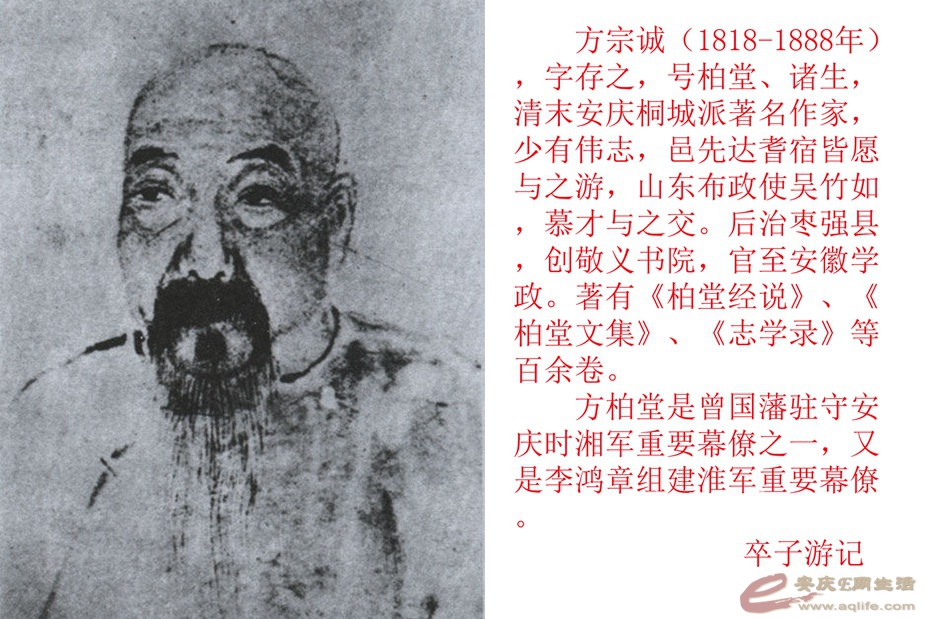 方宗诚（1818-1888年）
，字存之，号柏堂、诸生，
清末安庆桐城派著名作家，
少有伟志，邑先达耆宿皆愿
与之游，山东布政使吴竹如
，慕才与之交。后治枣强县
，创敬义书院，官至安徽学
政。著有《柏堂经说》、《
柏堂文集》、《志学录》等
百余卷。
方柏堂是曾国藩驻守安
庆时湘军重要幕僚之一，又
是李鸿章组建淮军重要幕僚
。
卒子游记
安庆E网生活
www.aqlife.com